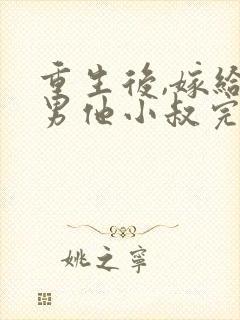 重生後,嫁給
男他小叔完
姚之寧